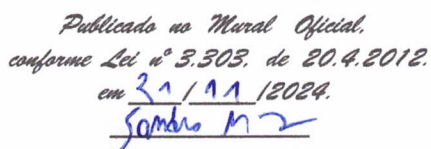 Publicado no Mural Oficial,
conforme Lei nº 3.303, de 20.4.2012.
em 21/11/2024.
Sandro